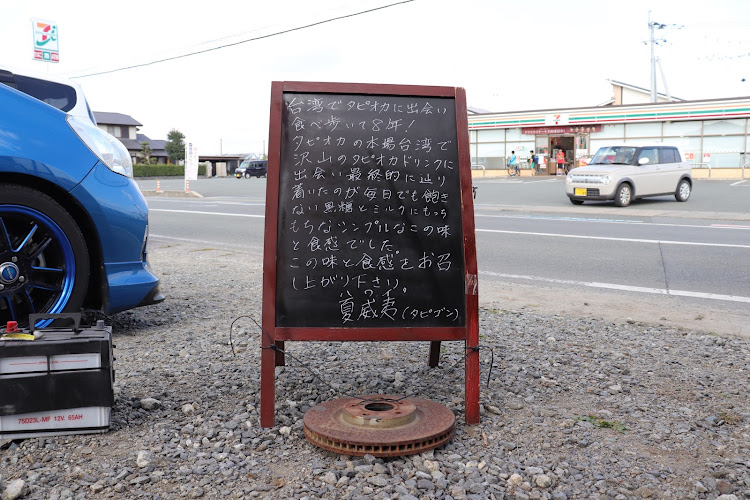 台湾でタピオカに出会い
食べ歩いて8年!
タピオカの本場台湾で
沢山のタピオカドリンクに
出会い最終的に辿り
着いたのが毎日でも飽き
ない黒糖とミルクにもっち
もちなシンプルなこの味
と食感でした。
この味と食感をお召
し上がり下さい。
ハワイ。
夏威夷(タピゴン)
75D23L-MF 12V 65AH